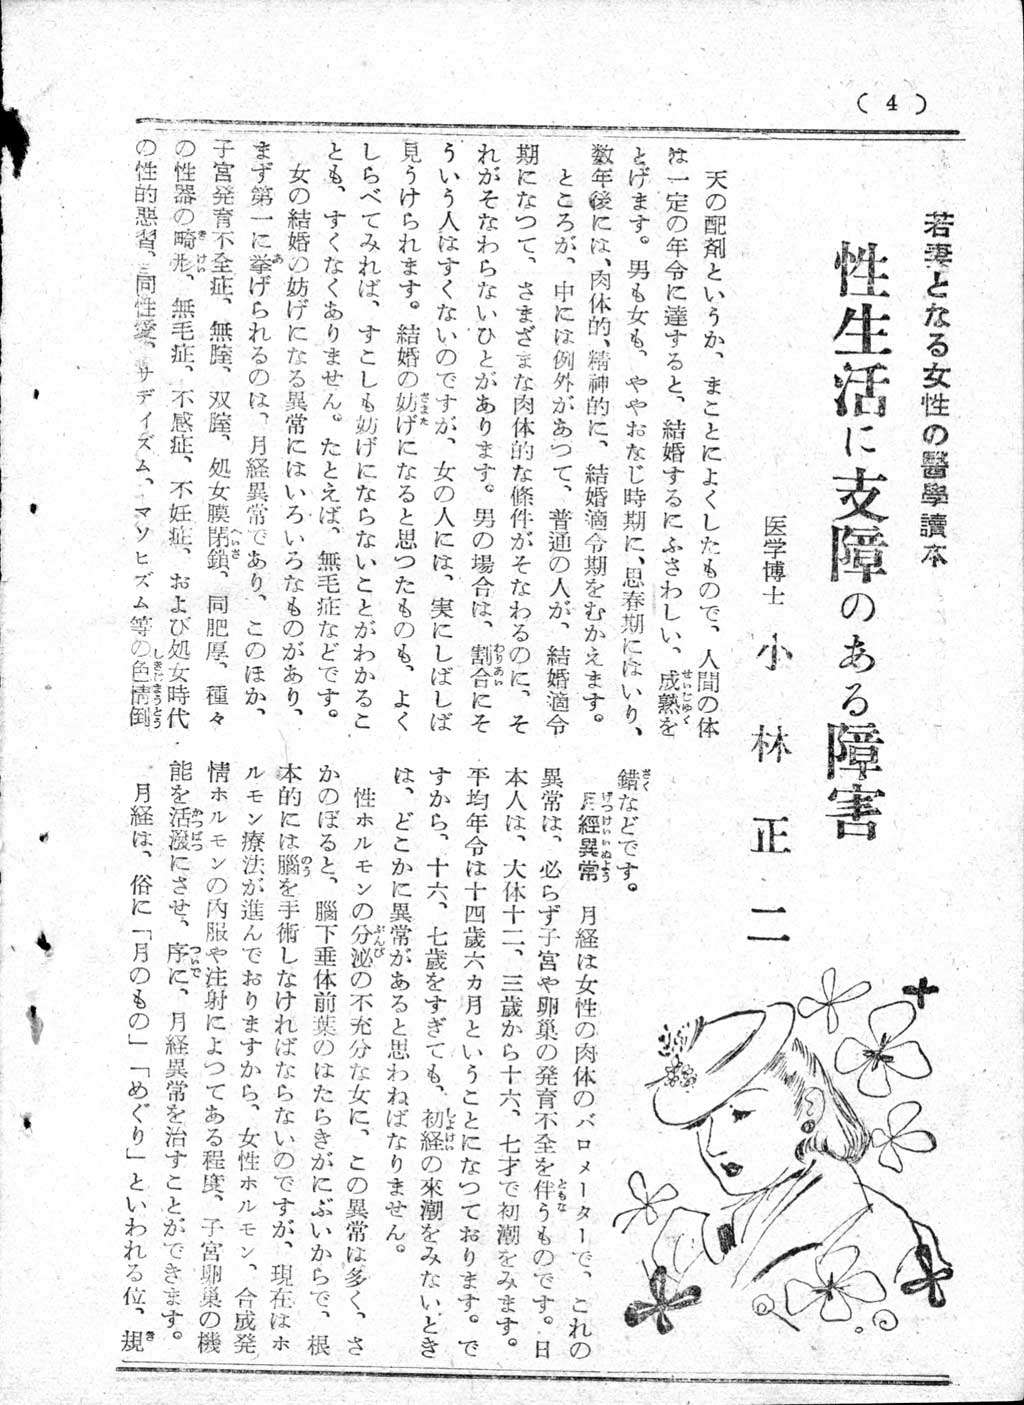 ( 4 )
若妻となる女性の醫學讀本
性生活に支障のある障害
医学博士 小林正二
天の配剤というか、まことによくしたもので、人間の体
は一定の年令に達すると、結婚するにふさわしい、成熟を
とげます。男も女も、ややおなじ時期に、思春期にはいり、
数年後には、肉体的、精神的に、結婚適令期をむかえます。
ところが、中には例外があつて、普通の人が、結婚適令
期になつて、さまざまな肉体的な條件がそなわるのに、そ
れがそなわらないひとがあります。男の場合は、割合にそ
ういう人はすくないのですが、女の人には、実にしばしば
見うけられます。結婚の妨げになると思つたものも、よく
しらべてみれば、すこしも妨げにならないことがわかるこ
とも、すくなくありません。たとえば、無毛症などです。
女の結婚の妨げになる異常にはいろいろなものがあり、
まず第一に挙げられるのは、月経異常であり、このほか、
子宮発育不全症、無膣、双膣、処女膜閉鎖、同肥厚、種々
の性器の畸形、無毛症、不感症、不妊症、および処女時代
の性的悪習、同性愛、サディズム、マソヒズム等の色情倒
錯などです。
月經異常 月経は女性の肉体のバロメーターで、これの
異常は、必らず子宮や卵巣の発育不全を伴うものです。日
本人は、大体十二、三歳から十六、七才で初潮をみます。
平均年令は十四歳六カ月ということになつております。で
すから、十六、七歳をすぎても、初経の來潮をみないとき
は、どこかに異常があると思わねばなりません。
性ホルモンの分泌の不充分な女に、この異常は多く、さ
かのぼると、腦下垂体前葉のはたらきがにぶいからで、根
本的には腦を手術しなければならないのですが、現在はホ
ルモン療法が進んでおりますから、女性ホルモン、合成発
情ホルモンの内服や注射によつてある程度、子宮卵巣の機
能を活潑にさせ、序に、月経異常を治すことができます。
月経は、俗に「月のもの」「めぐり」といわれる位、規